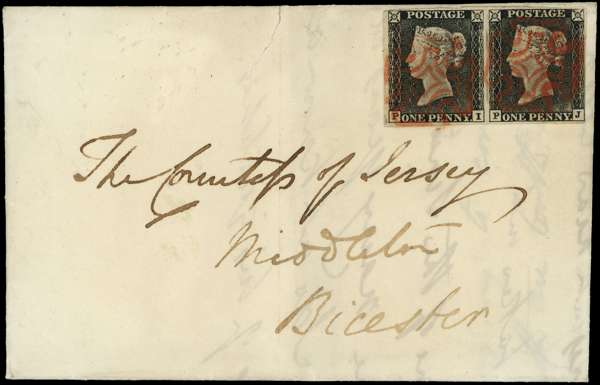 POSTAGE POSTAGE
ONE PENNY ONE PENNY
P I P J
The Countess of Jersey
Middleton
Bicester